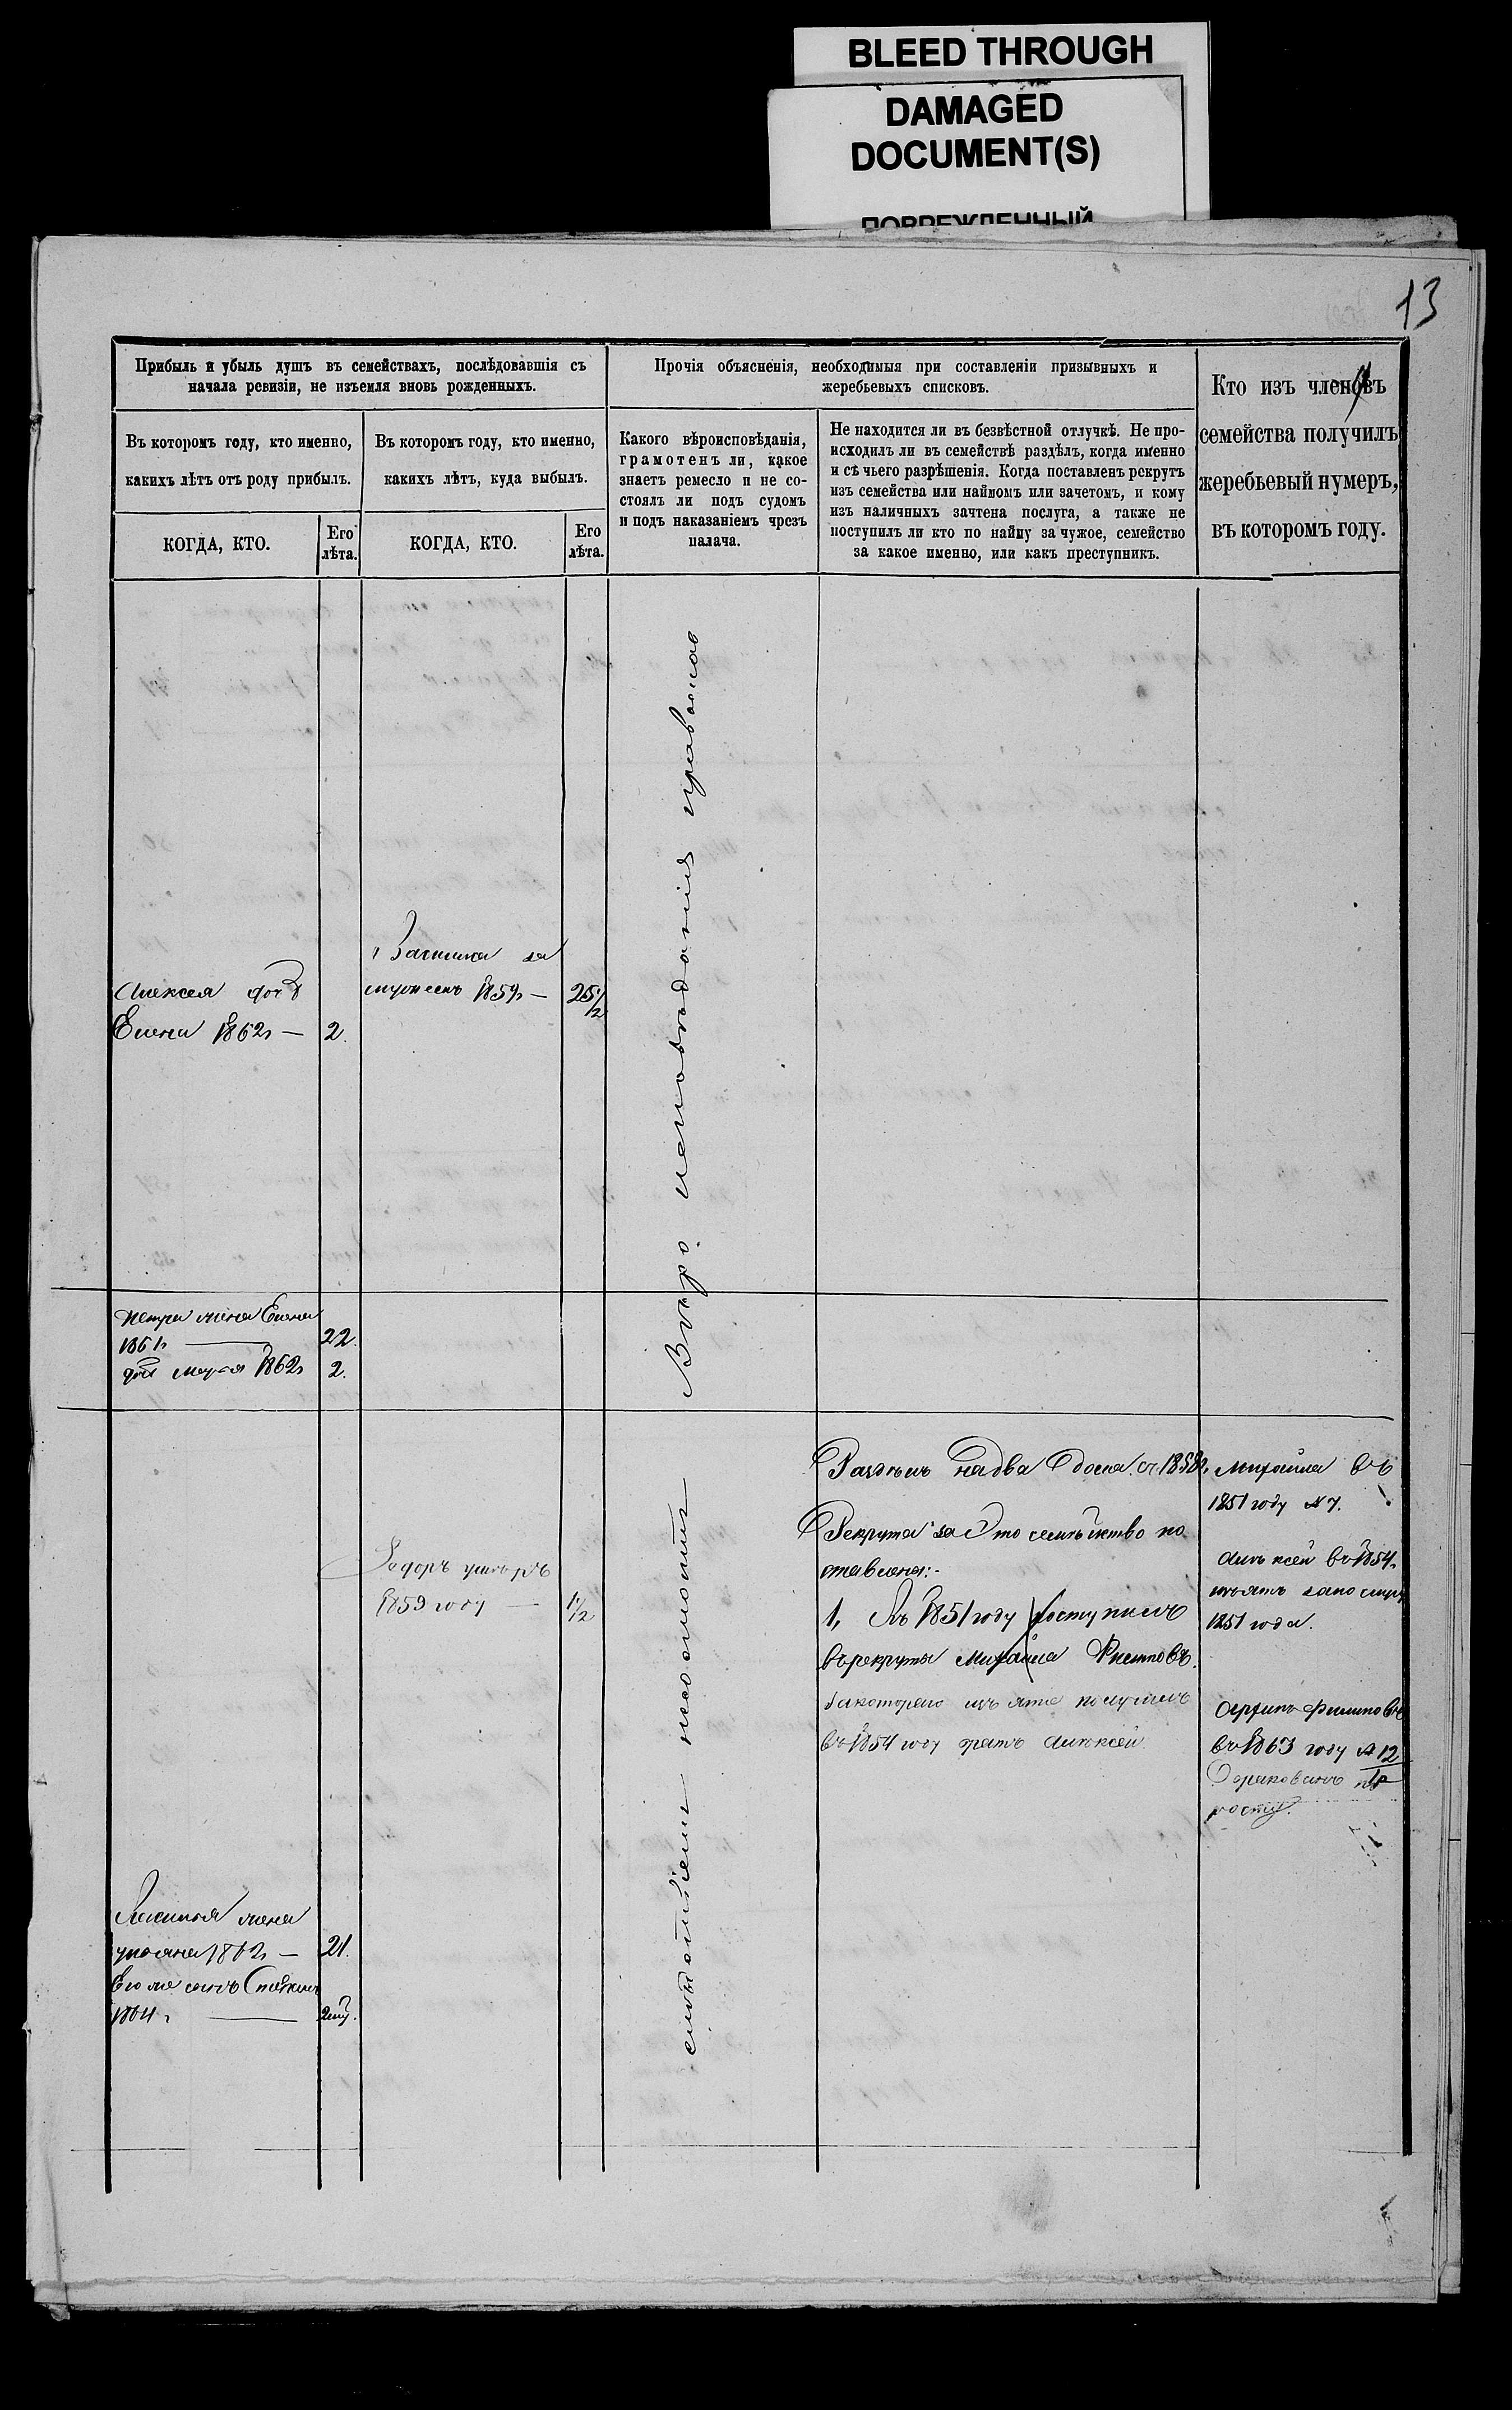 BLEED THROUGH
DAMAGED
DOCUMENT(S)
ПОВРЕЖДЕННЫЙ
13
Прибыль и убыль душъ въ семействахъ, послѣдовавшія съ
начала ревизіи, не изъемля вновь рожденныхъ.
Въ которомъ году, кто именно,
какихъ лѣтъ отъ роду прибылъ.
КОГДА, КТО.
Его
лѣта.
Въ которомъ году, кто именно,
какихъ лѣтъ, куда выбылъ.
КОГДА, КТО.
Его
лѣта.
Прочія объясненія, необходимыя при составленіи призывныхъ и
жеребьевыхъ списковъ.
Какого вѣроисповѣданія,
грамотенъ ли, какое
знаетъ ремесло и не со-
стоялъ ли подъ судомъ
и подъ наказаніемъ чрезъ
палача.
Не находится ли въ безвѣстной отлучкѣ. Не про-
исходилъ ли въ семействѣ раздѣлъ, когда именно
и съ чьего разрѣшенія. Когда поставленъ рекрутъ
изъ семейства или наймомъ или зачетомъ, и кому
изъ наличныхъ зачтена послуга, а также не
поступилъ ли кто по найму за чужое, семейство
за какое именно, или какъ преступникъ.
Кто изъ членовъ
семейства получилъ
жеребьевый нумеръ,
въ которомъ году.
Алексея доч
Елена 1862г — 2.
за
1859г — 25 1/2
Вѣро исповѣданія правослов
Петра жена Елена
1861г — 22.
доч Марья 1862г 2.
Федоръ умеръ
1859 году — 1/2
неграмотны
Раздѣлъ на два дома съ 1858г.
Рекрута за Это семѣйство по
ставлены:-
1, Въ 1851 году поступилъ
въ рекруты Михайла Филиповъ.
за котораго изъятіе получилъ
въ 1854 году братъ Алексѣй.
Михайла въ
1851 году № 7.
Алексѣй въ 1854г
изъятъ
1851 года.
Филиповъ
въ 1863 году № 12
Забракованъ по
росту.
жена
1862г — 21.
Его же сынъ
1864г —